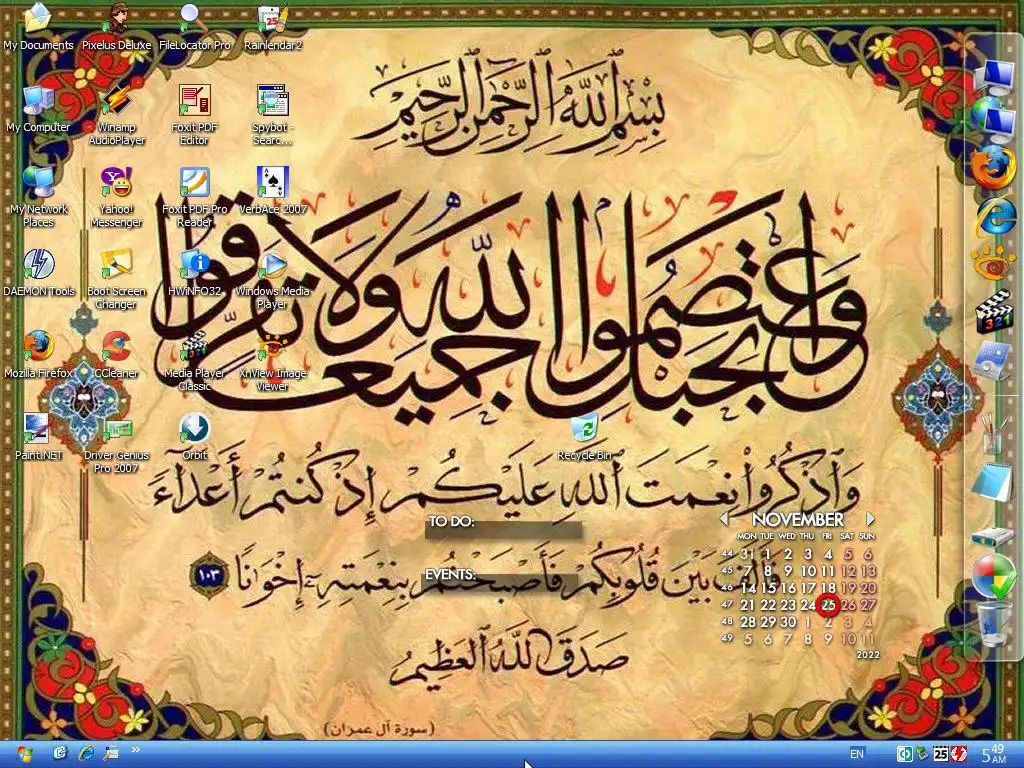 My Documents
Pixelus Deluxe
FileLocator Pro
Rainlendar2
My Computer
Winamp AudioPlayer
Foxit PDF Editor
Spybot - Searc...
My Network Places
Yahoo! Messenger
Foxit PDF Pro Reader
VerbAce 2007
DAEMON Tools
Boot Screen Changer
HWiNFO32
Windows Media Player
Mozilla Firefox
CCleaner
Media Player Classic
XnView Image Viewer
Paint.NET
Driver Genius Pro 2007
Orbit
Recycle Bin
بِسْمِ اللَّهِ الرَّحْمَنِ الرَّحِيمِ
واعتصموا بحبل الله جميعا ولا تفرقوا
وَاذْكُرُوا نِعْمَتَ اللَّهِ عَلَيْكُمْ إِذْ كُنتُمْ أَعْدَاءً
فَأَلَّفَ بَيْنَ قُلُوبِكُمْ فَأَصْبَحْتُم بِنِعْمَتِهِ إِخْوَانًا ١٠٣
صَدَقَ اللَّهُ الْعَظِيمُ
(سورة آل عمران)
TO DO:
EVENTS:
NOVEMBER
MON TUE WED THU FRI SAT SUN
44 31 1 2 3 4 5 6
45 7 8 9 10 11 12 13
46 14 15 16 17 18 19 20
47 21 22 23 24 25 26 27
48 28 29 30 1 2 3 4
49 5 6 7 8 9 10 11
2022
321
EN
25
5 49 AM